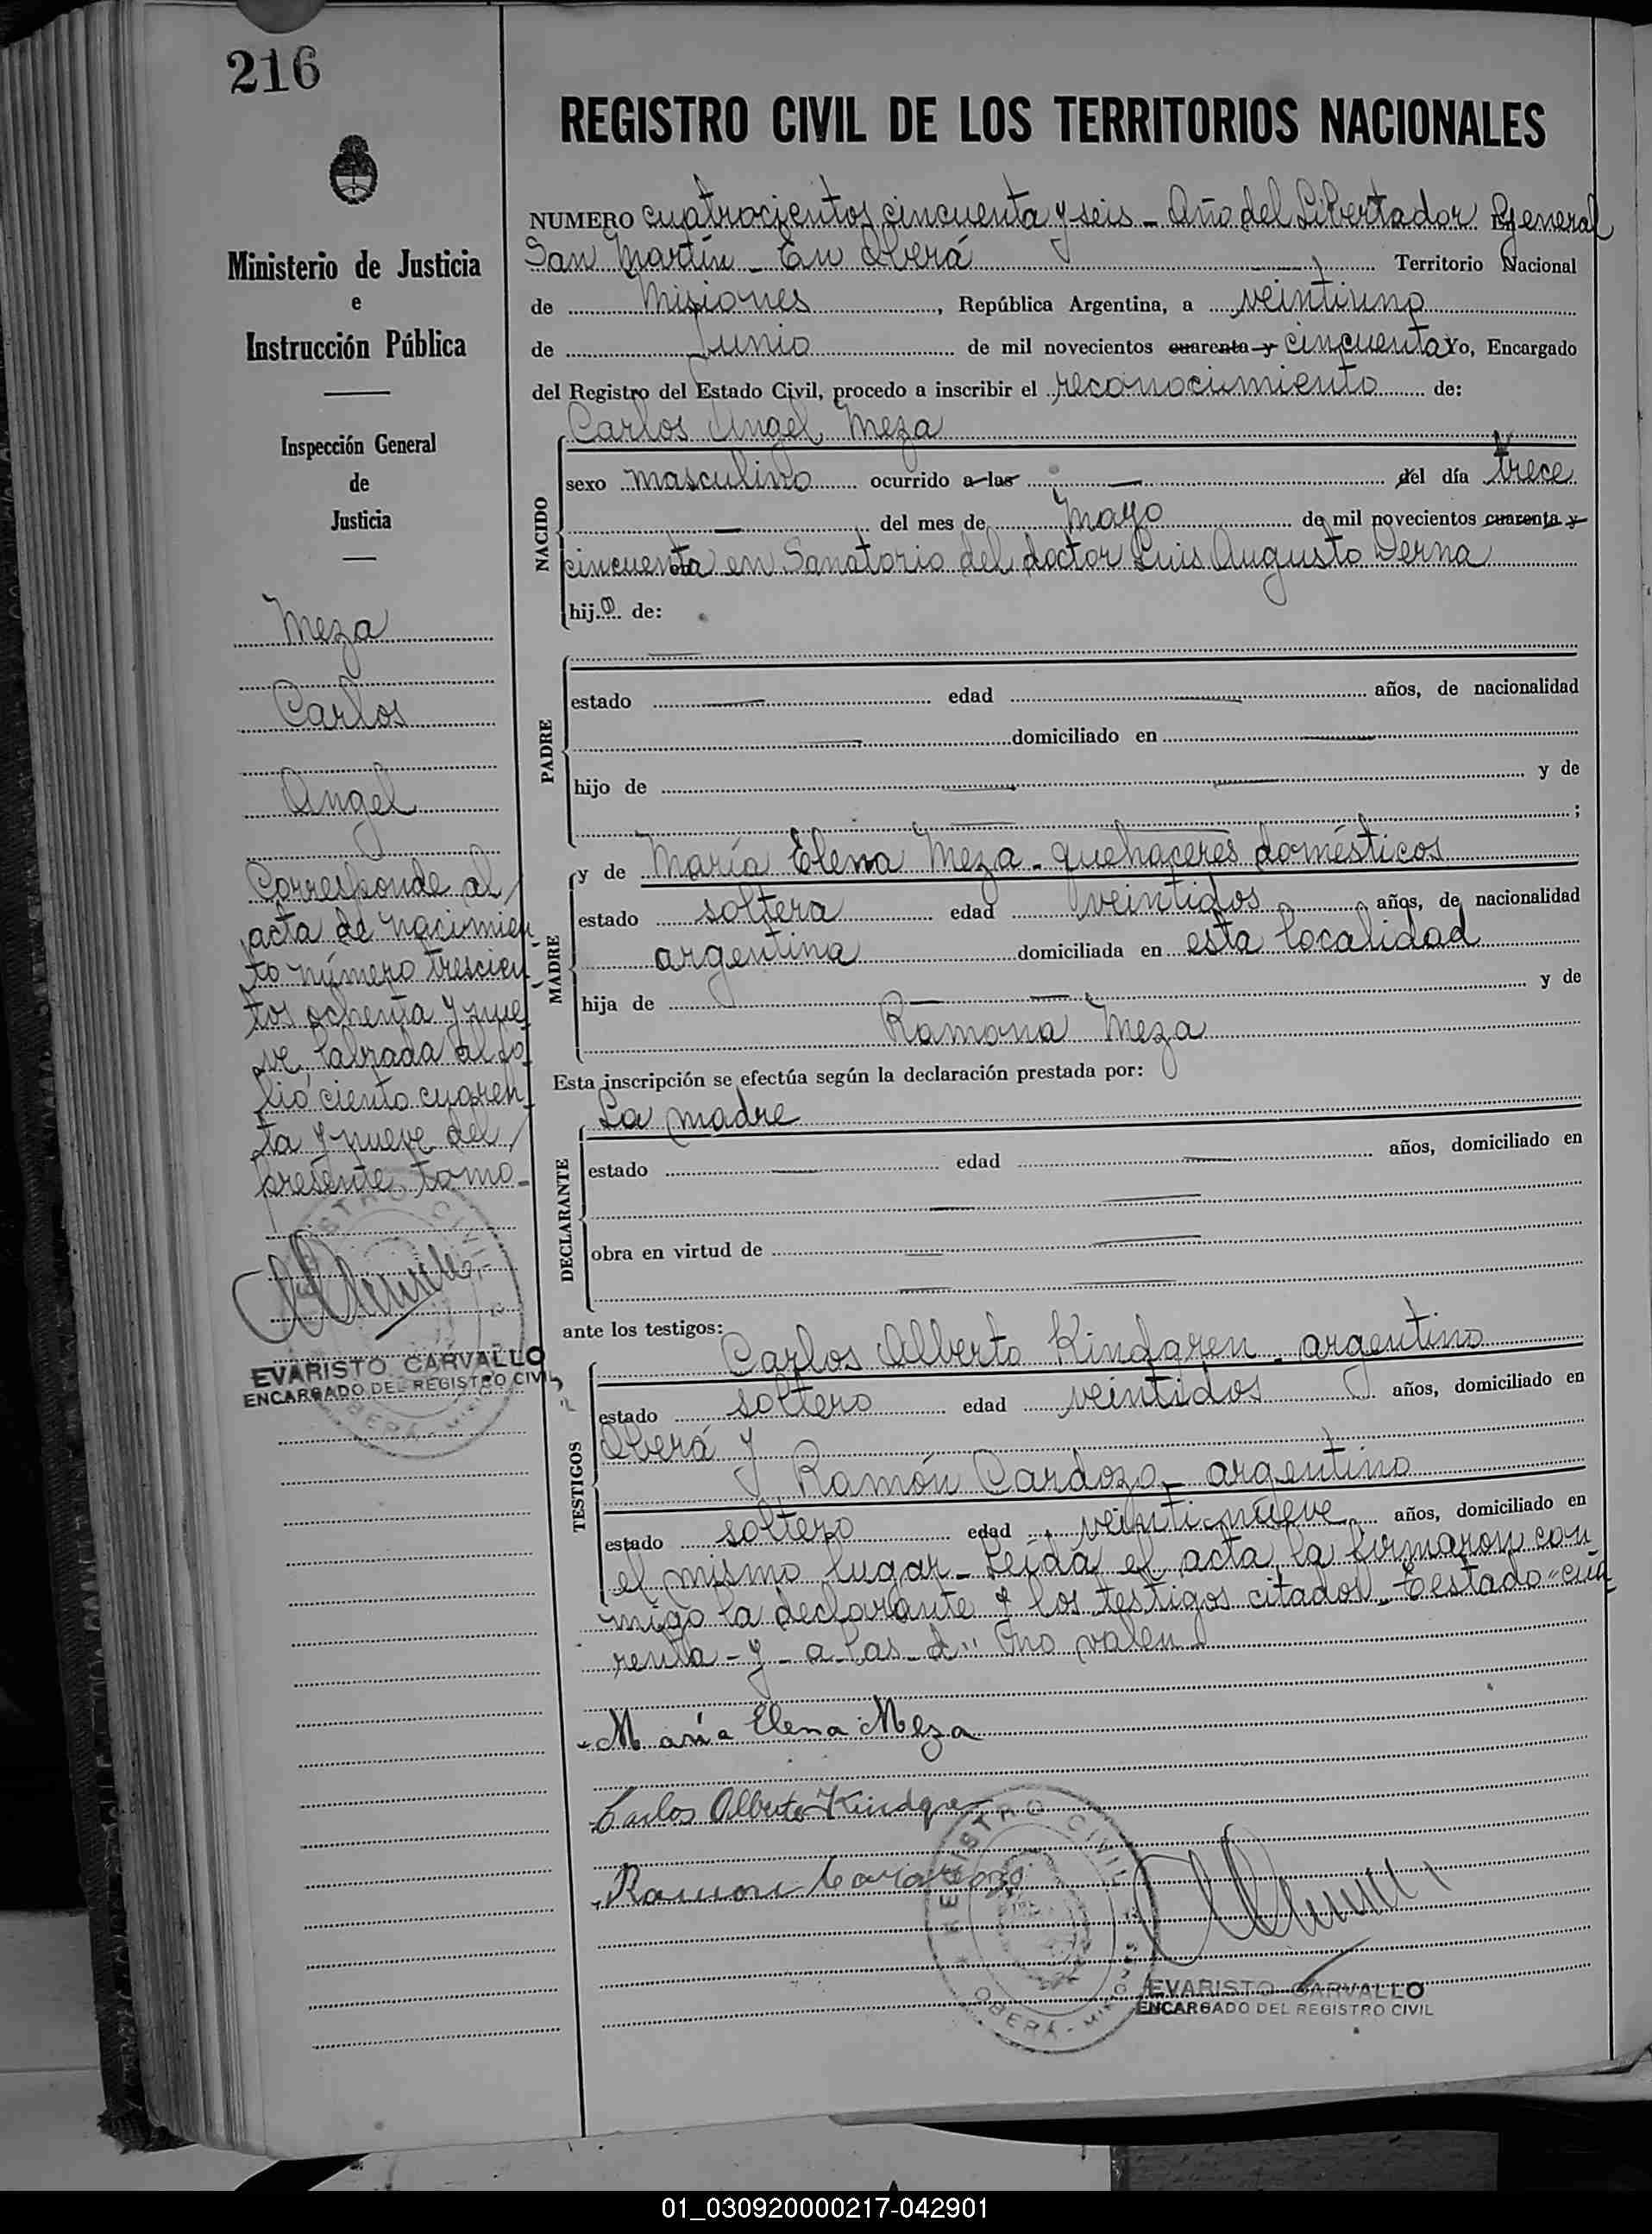 216
Ministerio de Justicia
e
Instrucción Pública
Inspección General
de
Justicia
Meza
Carlos
Angel
Corresponde al
acta de nacimien
to número trescien
tos ochenta y nue
ve, labrada al fo
lio ciento cuaren
ta y nueve del
presente tomo-
REGISTRO CIVIL
OBERÁ - MISIONES
EVARISTO CARVALLO
ENCARGADO DEL REGISTRO CIVIL
REGISTRO CIVIL DE LOS TERRITORIOS NACIONALES
NUMERO cuatrocientos cincuenta y seis - Año del Libertador General
San Martín - En Oberá Territorio Nacional
de Misiones, República Argentina, a veintiuno
de Junio de mil novecientos cuarenta y cincuenta Yo, Encargado
del Registro del Estado Civil, procedo a inscribir el reconocimiento de:
Carlos Angel Meza
NACIDO
sexo masculino ocurrido a las — del día trece
— del mes de Mayo de mil novecientos cuarenta y
cincuenta en Sanatorio del doctor Luis Augusto Derna
hijo de:
PADRE
estado — edad — años, de nacionalidad
— domiciliado en —
hijo de — y de
— ;
MADRE
y de María Elena Meza - quehaceres domésticos
estado soltera edad veintidos años, de nacionalidad
argentina domiciliada en esta localidad
hija de — y de
Ramona Meza
Esta inscripción se efectúa según la declaración prestada por:
DECLARANTE
La madre
estado — edad — años, domiciliado en
—
obra en virtud de —
—
ante los testigos:
TESTIGOS
Carlos Alberto Kindgren - argentino
estado soltero edad veintidos años, domiciliado en
Oberá y
Ramón Cardozo - argentino
estado soltero edad veinti-nueve años, domiciliado en
el mismo lugar - Leída el acta la firmaron con
migo la declarante y los testigos citados - Testado "cua
renta - y - a las - d" no valen
María Elena Meza
Carlos Alberto Kindgren
Ramon Cardozo
REGISTRO CIVIL
OBERÁ - MISIONES
EVARISTO CARVALLO
ENCARGADO DEL REGISTRO CIVIL
01_030920000217-042901